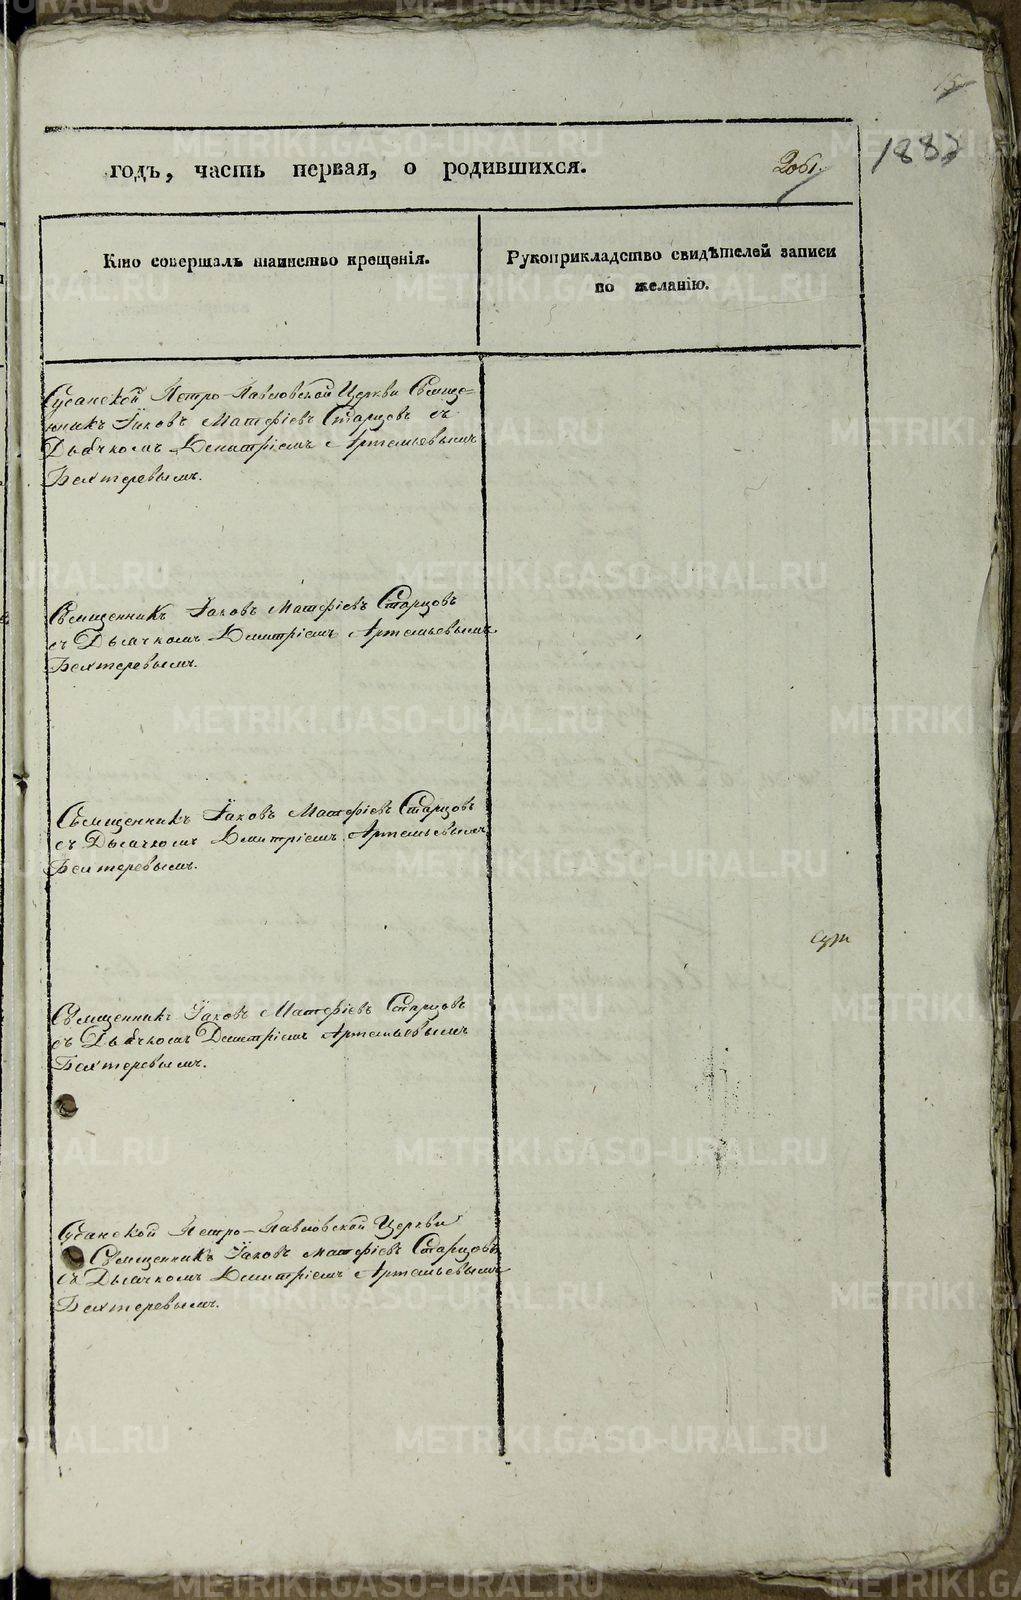 годъ, часть первая, о родившихся.
Кто совершалъ таинство крещенія.
Рукоприкладство свидѣтелей записи
по желанію.
Сусанской Петро-Павловской Церкви Священ-
никъ Іаковъ Матфіевъ Старцовъ съ
Дьячкомъ Димитріемъ Артемьевымъ
Бехтеревымъ.
Священникъ Іаковъ Матфіевъ Старцовъ
съ Дьячкомъ Димитріемъ Артемьевымъ
Бехтеревымъ.
Священникъ Іаковъ Матфіевъ Старцовъ
съ Дьячкомъ Димитріемъ Артемьевымъ
Бехтеревымъ.
Священникъ Іаковъ Матфіевъ Старцовъ
съ Дьячкомъ Димитріемъ Артемьевымъ
Бехтеревымъ.
Сусанской Петро-Павловской Церкви
Священникъ Іаковъ Матфіевъ Старцовъ
съ Дьячкомъ Димитріемъ Артемьевымъ
Бехтеревымъ.
METRIKI.GASO-URAL.RU